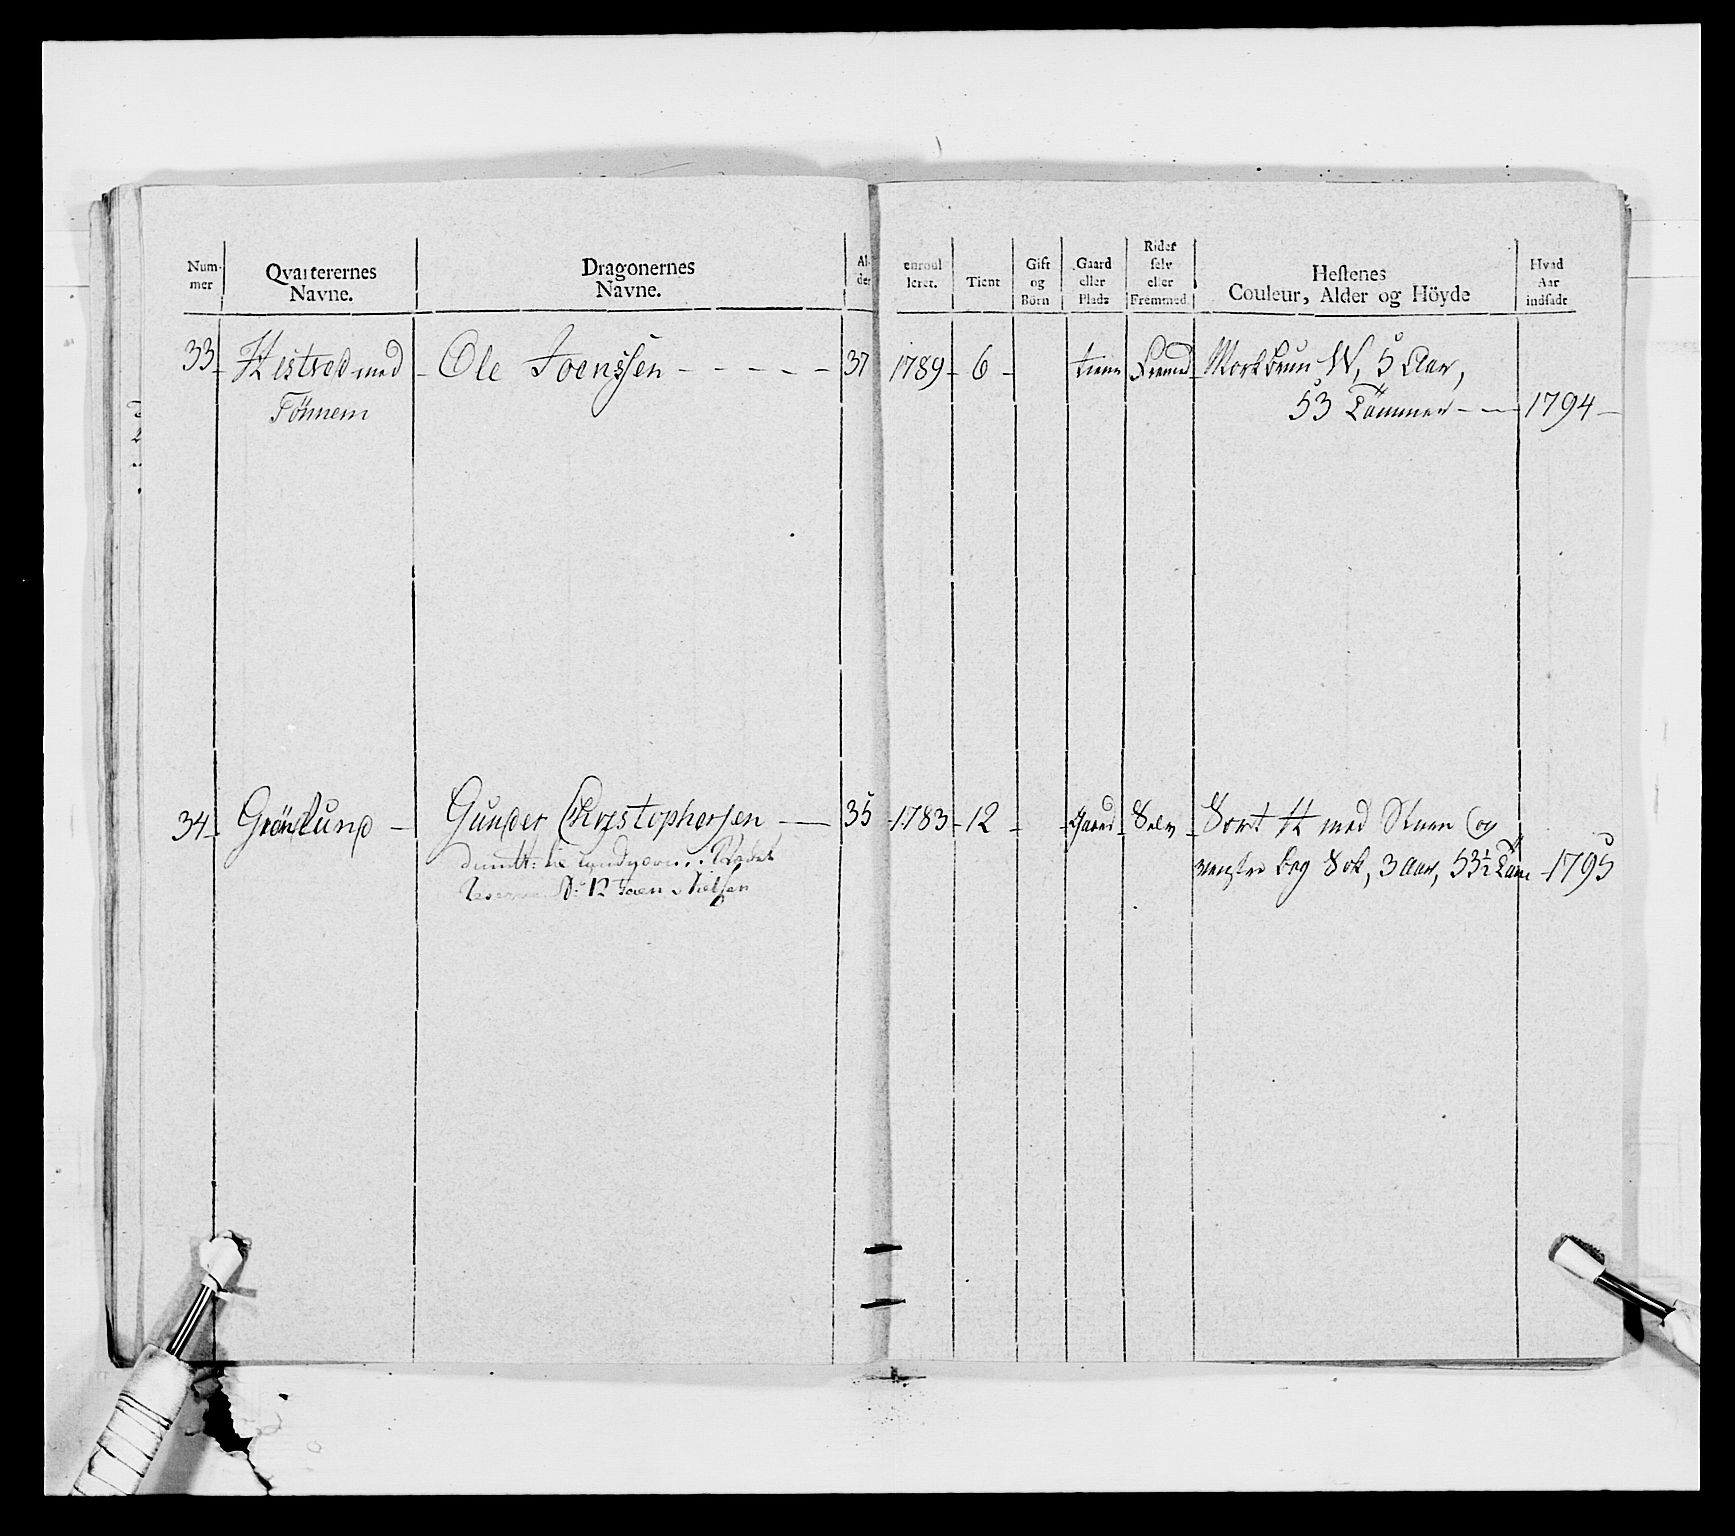 Num-
mer
Qvarterernes
Navne.
Dragonernes
Navne.
Al-
der
enroul
leret.
Tient
Gift
og
Börn
Gaard
eller
Plads
Rider
selv
eller
Fremmed.
Hestenes
Couleur, Alder og Höyde
Hvad
Aar
indsadt
33 Histved med Ole Joenssen 37 1789 6 tiener Fremed Morkbrun W, 5 Aar,
Tönnem 53 Tömmer 1794
34 Grönlund Gunder Chrystophersen 35 1783 12 Gaard Selv Sort H med Stiern og
venstre bag Sok, 3 Aar, 53½ Töm 1795
No 12 Joen Nielsen